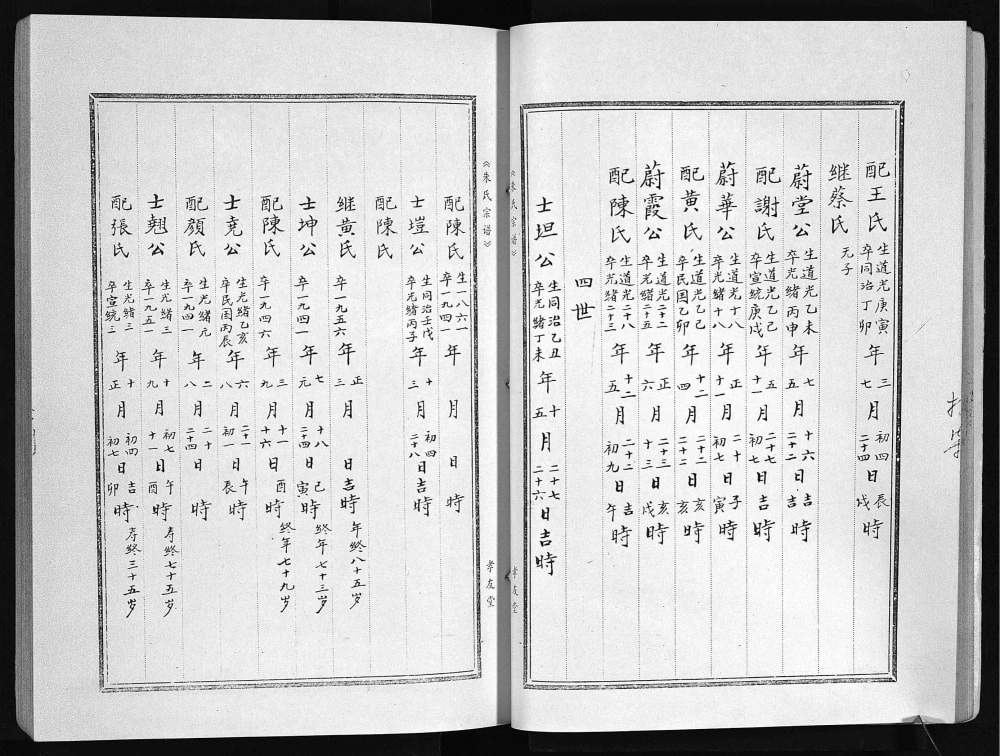 配王氏 生道光庚寅 卒同治丁卯 年 三 七 月 初四 二十四 日 辰 戌 時
继蔡氏 无子
蔚堂公 生道光乙未 卒光緒丙申 年 七 五 月 十六 二十二 日 吉 吉 時
配謝氏 生道光乙己 卒宣統庚戌 年 五 十一 月 二十七 初七 日 吉 時
蔚華公 生道光十八 卒光緒十八 年 正 十一 月 二十 初七 日 子 寅 時
配黄氏 生道光乙己 卒民国乙卯 年 十二 四 月 二十二 二十二 日 亥 亥 時
蔚霞公 生道光二十二 卒光緒二十五 年 正 六 月 二十三 十三 日 亥 戌 時
配陳氏 生道光二十八 卒光緒二十三 年 十二 五 月 二十二 初九 日 吉 午 時
四世
士坦公 生同治乙丑 卒光緒丁未 年 十 五 月 二十七 二十六 日 吉 時
《朱氏宗谱》 孝友堂
《朱氏宗谱》 孝友堂
配陳氏 生一八六一 卒一九四一 年 月 日 時
士塏公 生同治壬戌 卒光緒丙子 年 十 三 月 初四 二十八 日 吉 時
配陳氏
继黄氏 卒一九五六 年 正 三 月 日 吉 時 年終八十五岁
士坤公 卒一九四一 年 七 元 月 十八 二十四 日 巳 寅 時 終年七十三岁
配陳氏 卒一九四六 年 三 九 月 十一 十六 日 酉 時 終年七十九岁
士尭公 生光緒乙亥 卒民国丙辰 年 六 八 月 二十一 初一 日 午 辰 時
配顔氏 生光緒元 卒一九四一 年 二 八 月 二十 二十四 日 時
士翹公 生光緒三 卒一九五一 年 十 九 月 初七 十一 日 午 酉 時 寿終七十五岁
配張氏 生光緒三 卒宣統三 年 十 正 月 初四 初七 日 吉 卯 時 寿終三十五岁